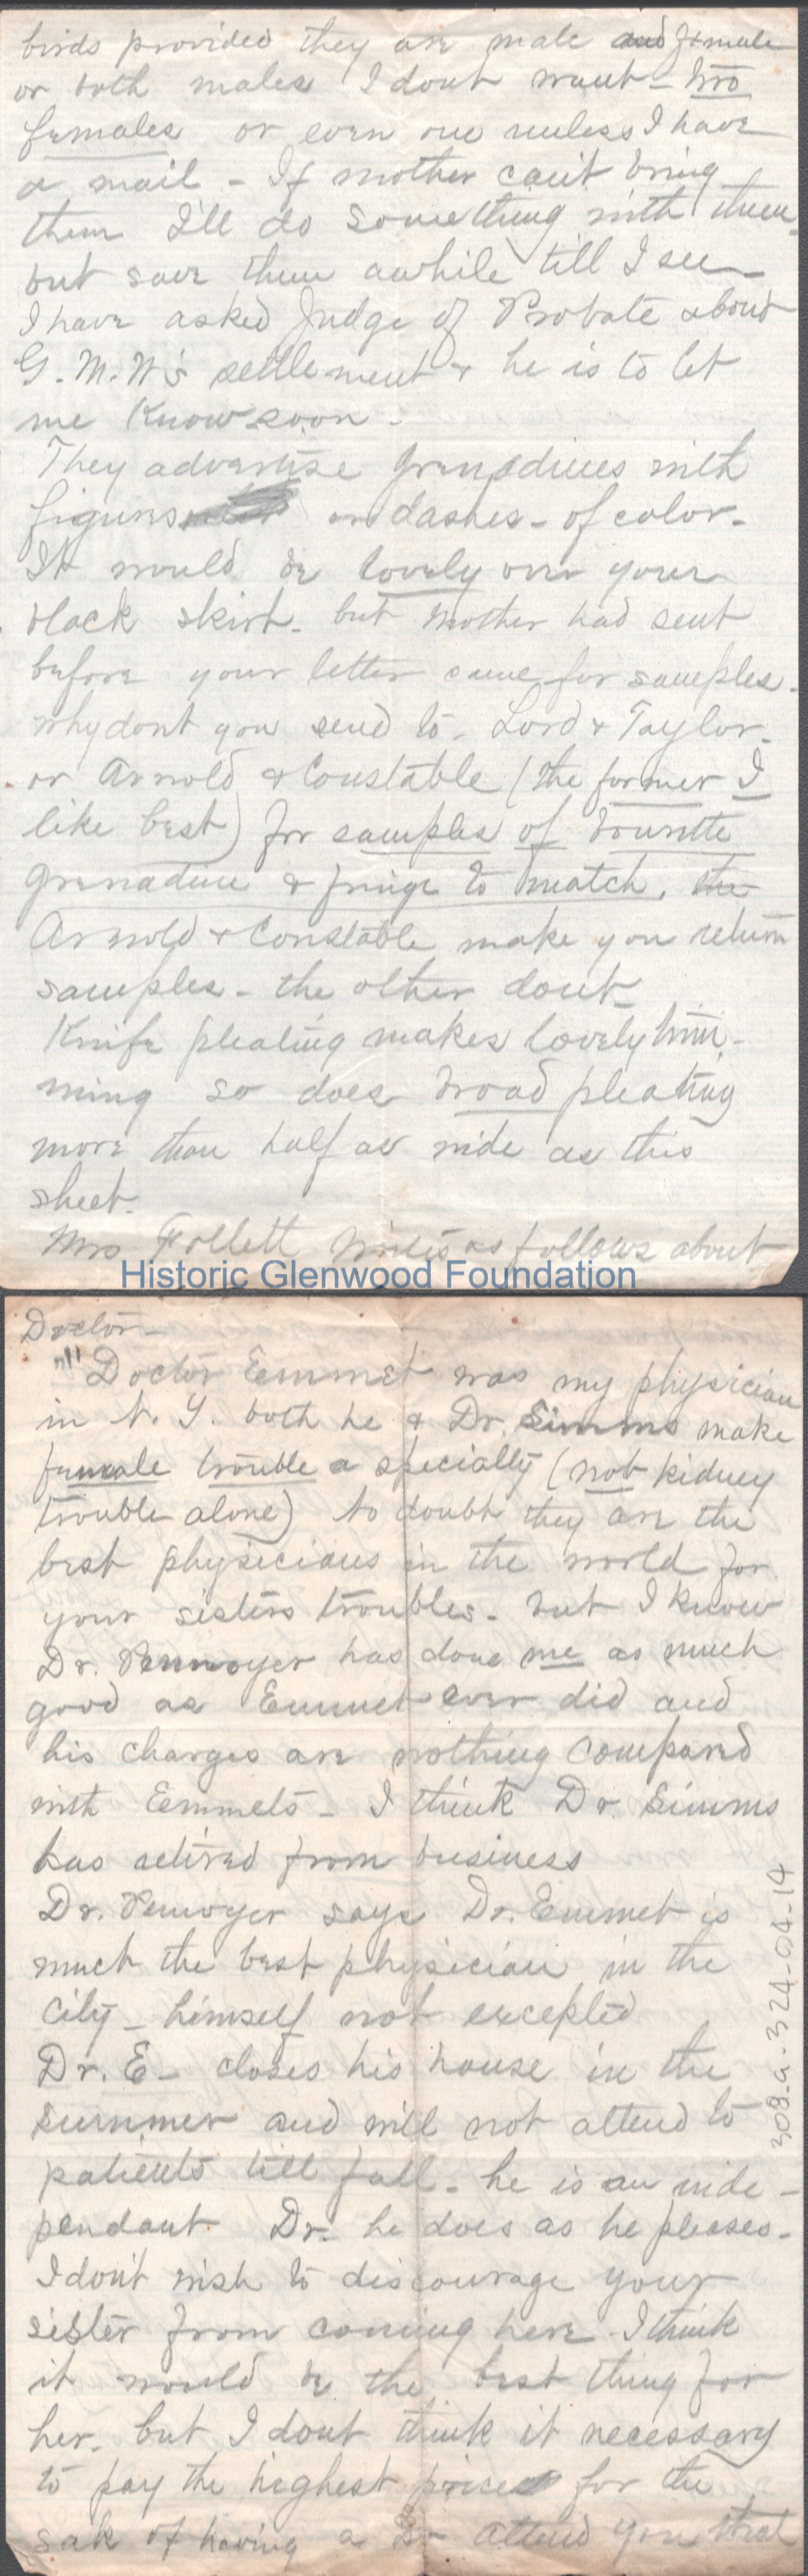 birds provided they are male and female
or both males I dont want - two
females or even one unless I have
a mail - If mother can't bring
them I'll do something with them,
but save them awhile till I see
I have asked Judge of Probate about
G. M. W's settlement & he is to let
me know soon -
They advertise grenadines with
figures or dashes - of color -
It would be lovely over your
black skirt - but mother had sent
before your letter came for samples -
why dont you send to - Lord & Taylor -
or Arnold & Constable (the former I
like best) for samples of
grenadine & fringe to match, the
Arnold & Constable make you return
samples - the other dont
Knife pleating makes lovely trim-
ming so does broad pleating
more than half as wide as this
sheet.
Mrs Follett writes as follows about
Historic Glenwood Foundation
Doctor -
"Doctor Emmet was my physician
in N. Y. both he & Dr. Simms make
female trouble a specialty (not kidney
trouble alone) No doubt they are the
best physicians in the world for
your sisters troubles - but I know
Dr. Pennoyer has done me as much
good as Emmet ever did and
his charges are nothing compared
with Emmets - I think Dr Simms
has retired from business
Dr. Penoyer says Dr. Emmet is
much the best physician in the
City - himself not excepted
Dr. E - closes his house in the
summer and will not attend to
patients till fall - he is an inde-
pendant Dr. he does as he pleases -
I don't wish to discourage your
sister from coming here I think
it would be the best thing for
her - but I dont think it necessary
to pay the highest price for the
sak of having a Dr attend you that
308-a-324-04-14